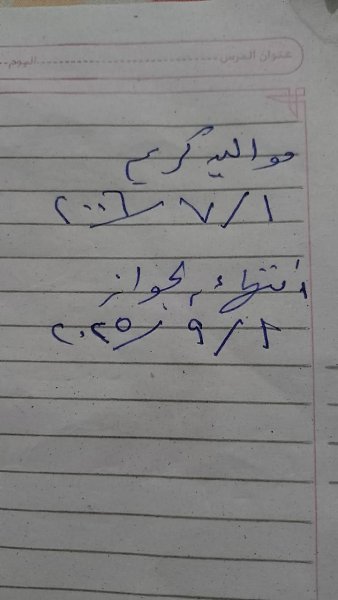 عنوان الدرس ........................ اليوم ........
مواليد كريم
٢٠٠٦ / ٧ / ١
انتهاء الجواز
٢٠٢٥ / ٩ / ١